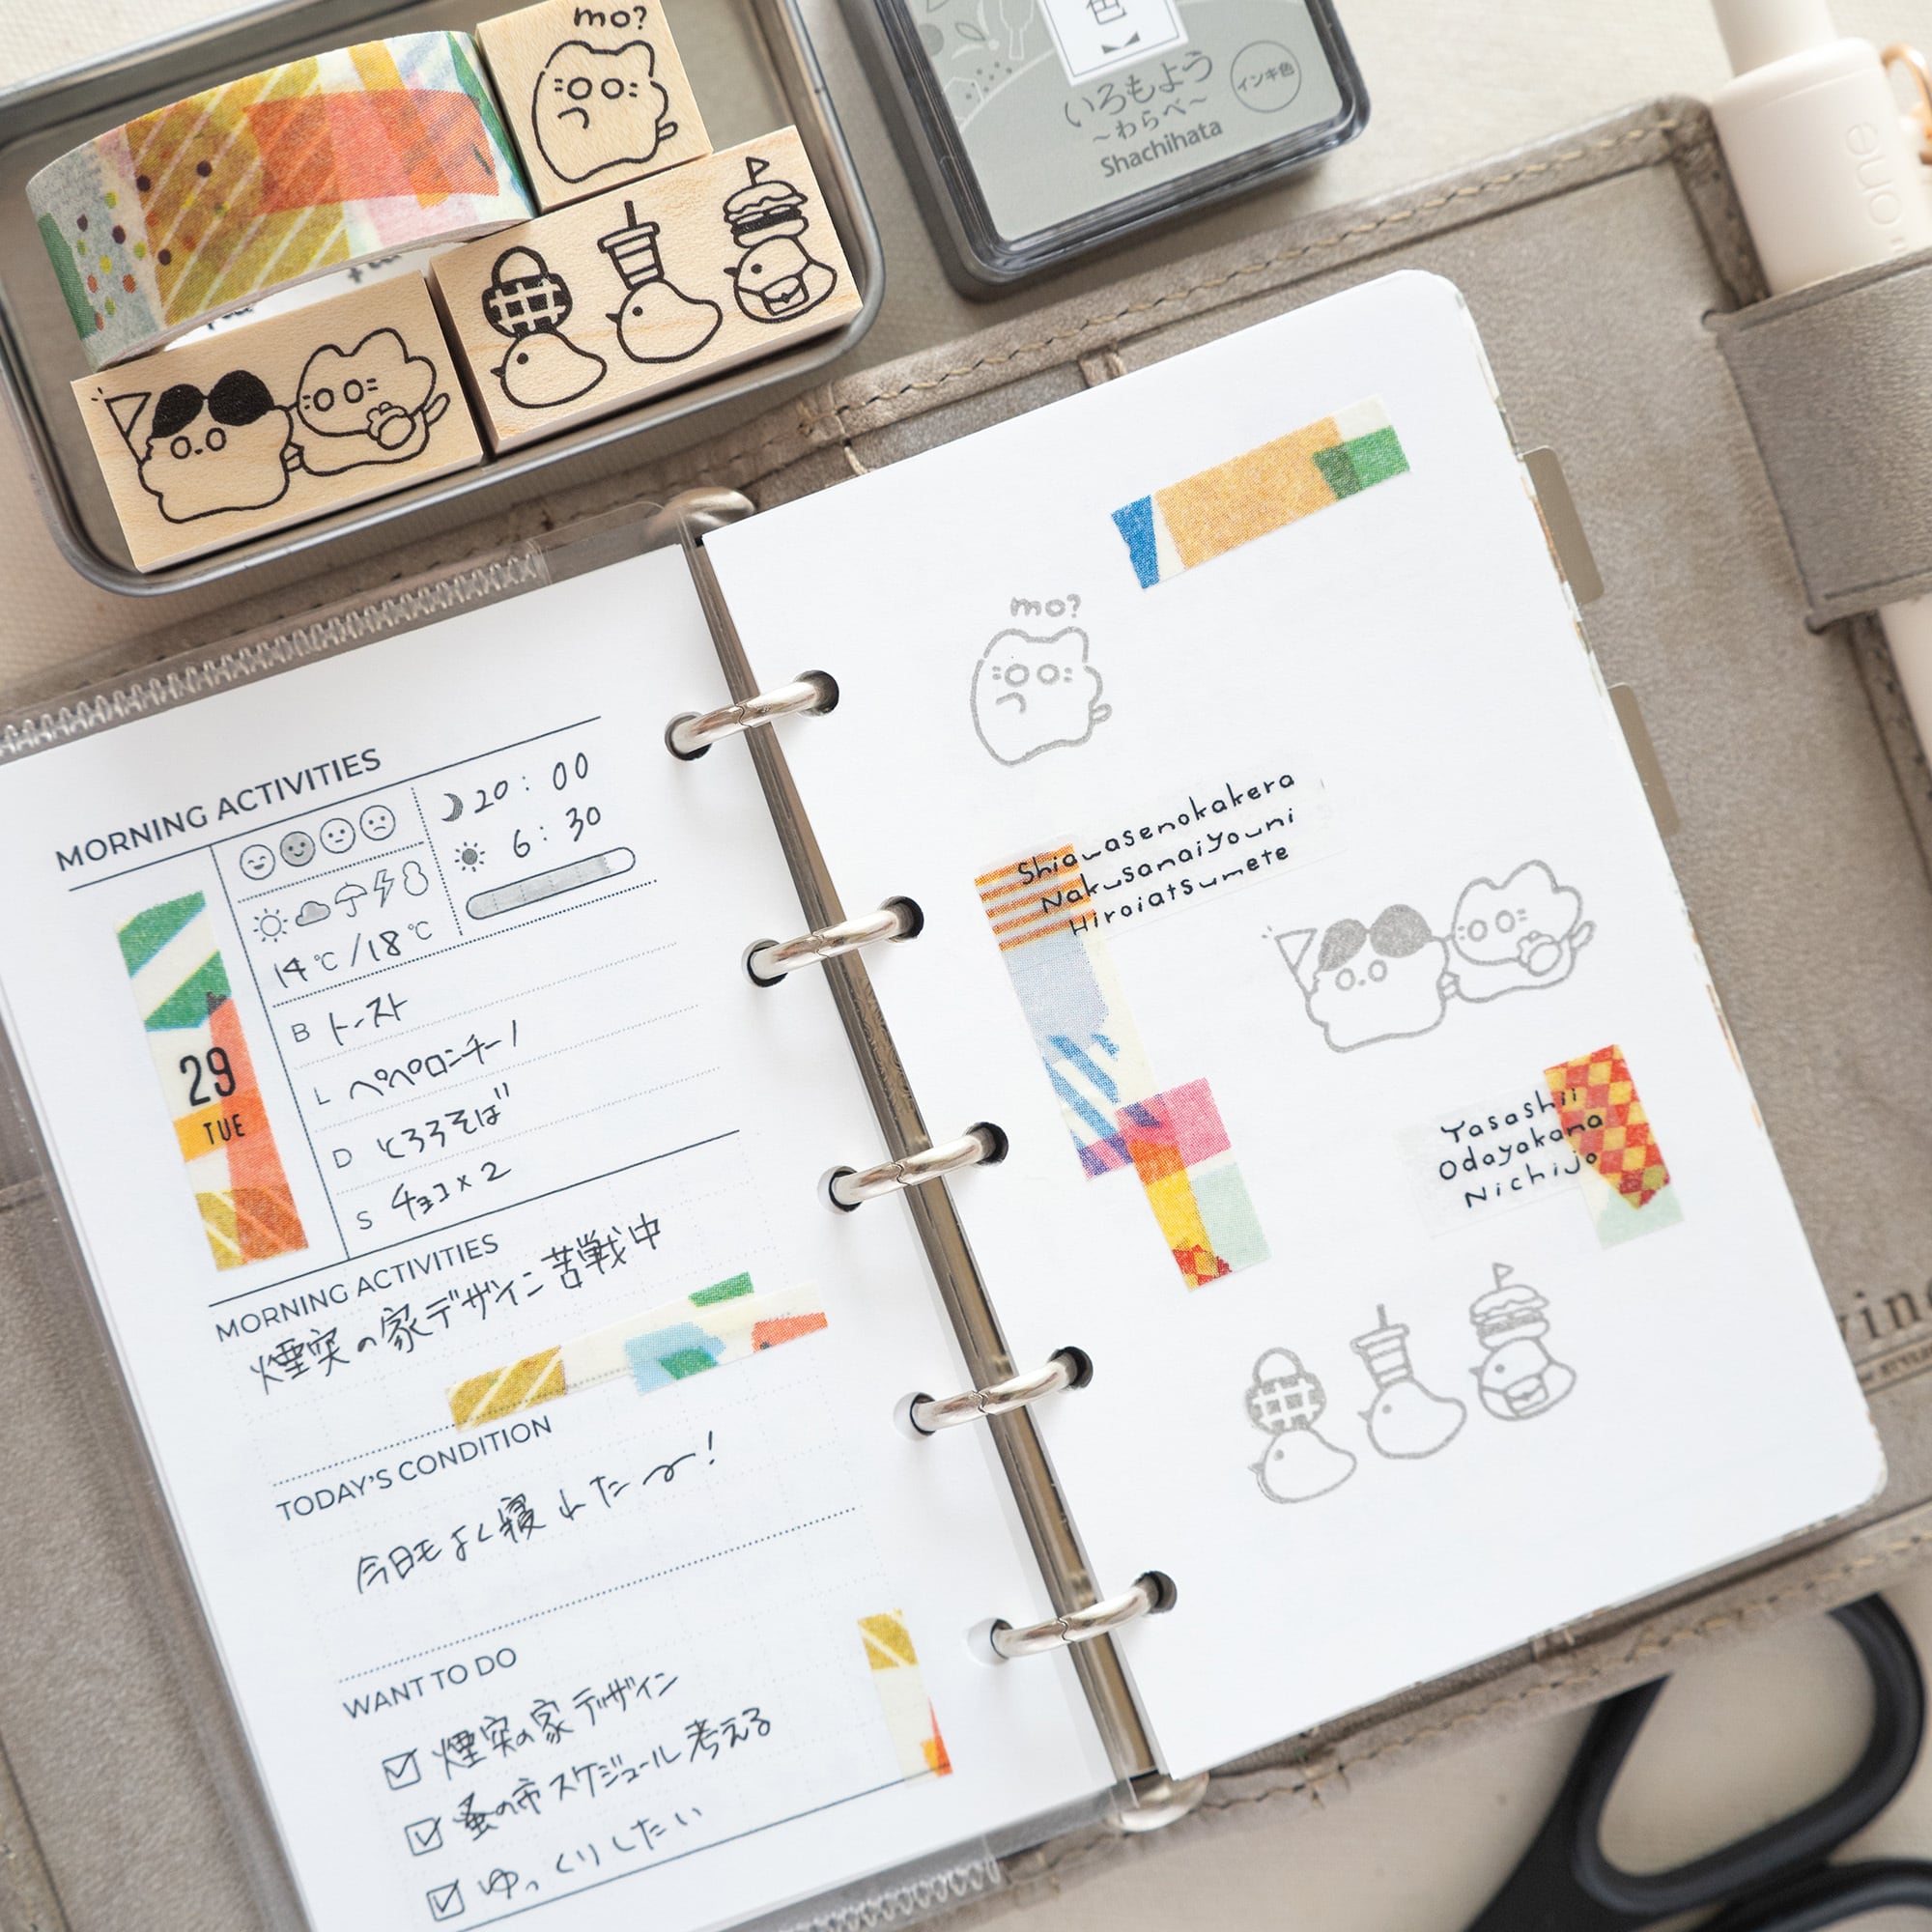 mo?
色
いろもよう
〜わらべ〜
Shachihata
インキ色
one
MORNING ACTIVITIES
20:00
6:30
14℃/18℃
29
TUE
B トースト
L ペペロンチーノ
D とろろそば
S チョコ×2
MORNING ACTIVITIES
煙突の家デザイン苦戦中
TODAY'S CONDITION
今日もよく寝れた〜!
WANT TO DO
煙突の家デザイン
蚤の市スケジュール考える
ゆっくりしたい
mo?
Shiawasenokakera
Nakusanaiyouni
Hiroiatsumete
Yasashii
Odayakana
Nichijo